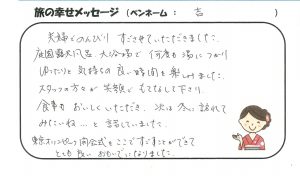 旅の幸せメッセージ (ペンネーム : 吉 )
夫婦でのんびり すごさせていただきました。
庭園露天風呂 大浴場で 何度も湯につかり
ゆったりと 気持ちの良い時間を 楽しみました。
スタッフの方々が 笑顔で もてなして下さり、
食事も おいしくいただき、次は冬に訪れて
みたいね… と 話していました。
東京オリンピック開会式を ここですごすことができて
とても良い おもいでになりました。